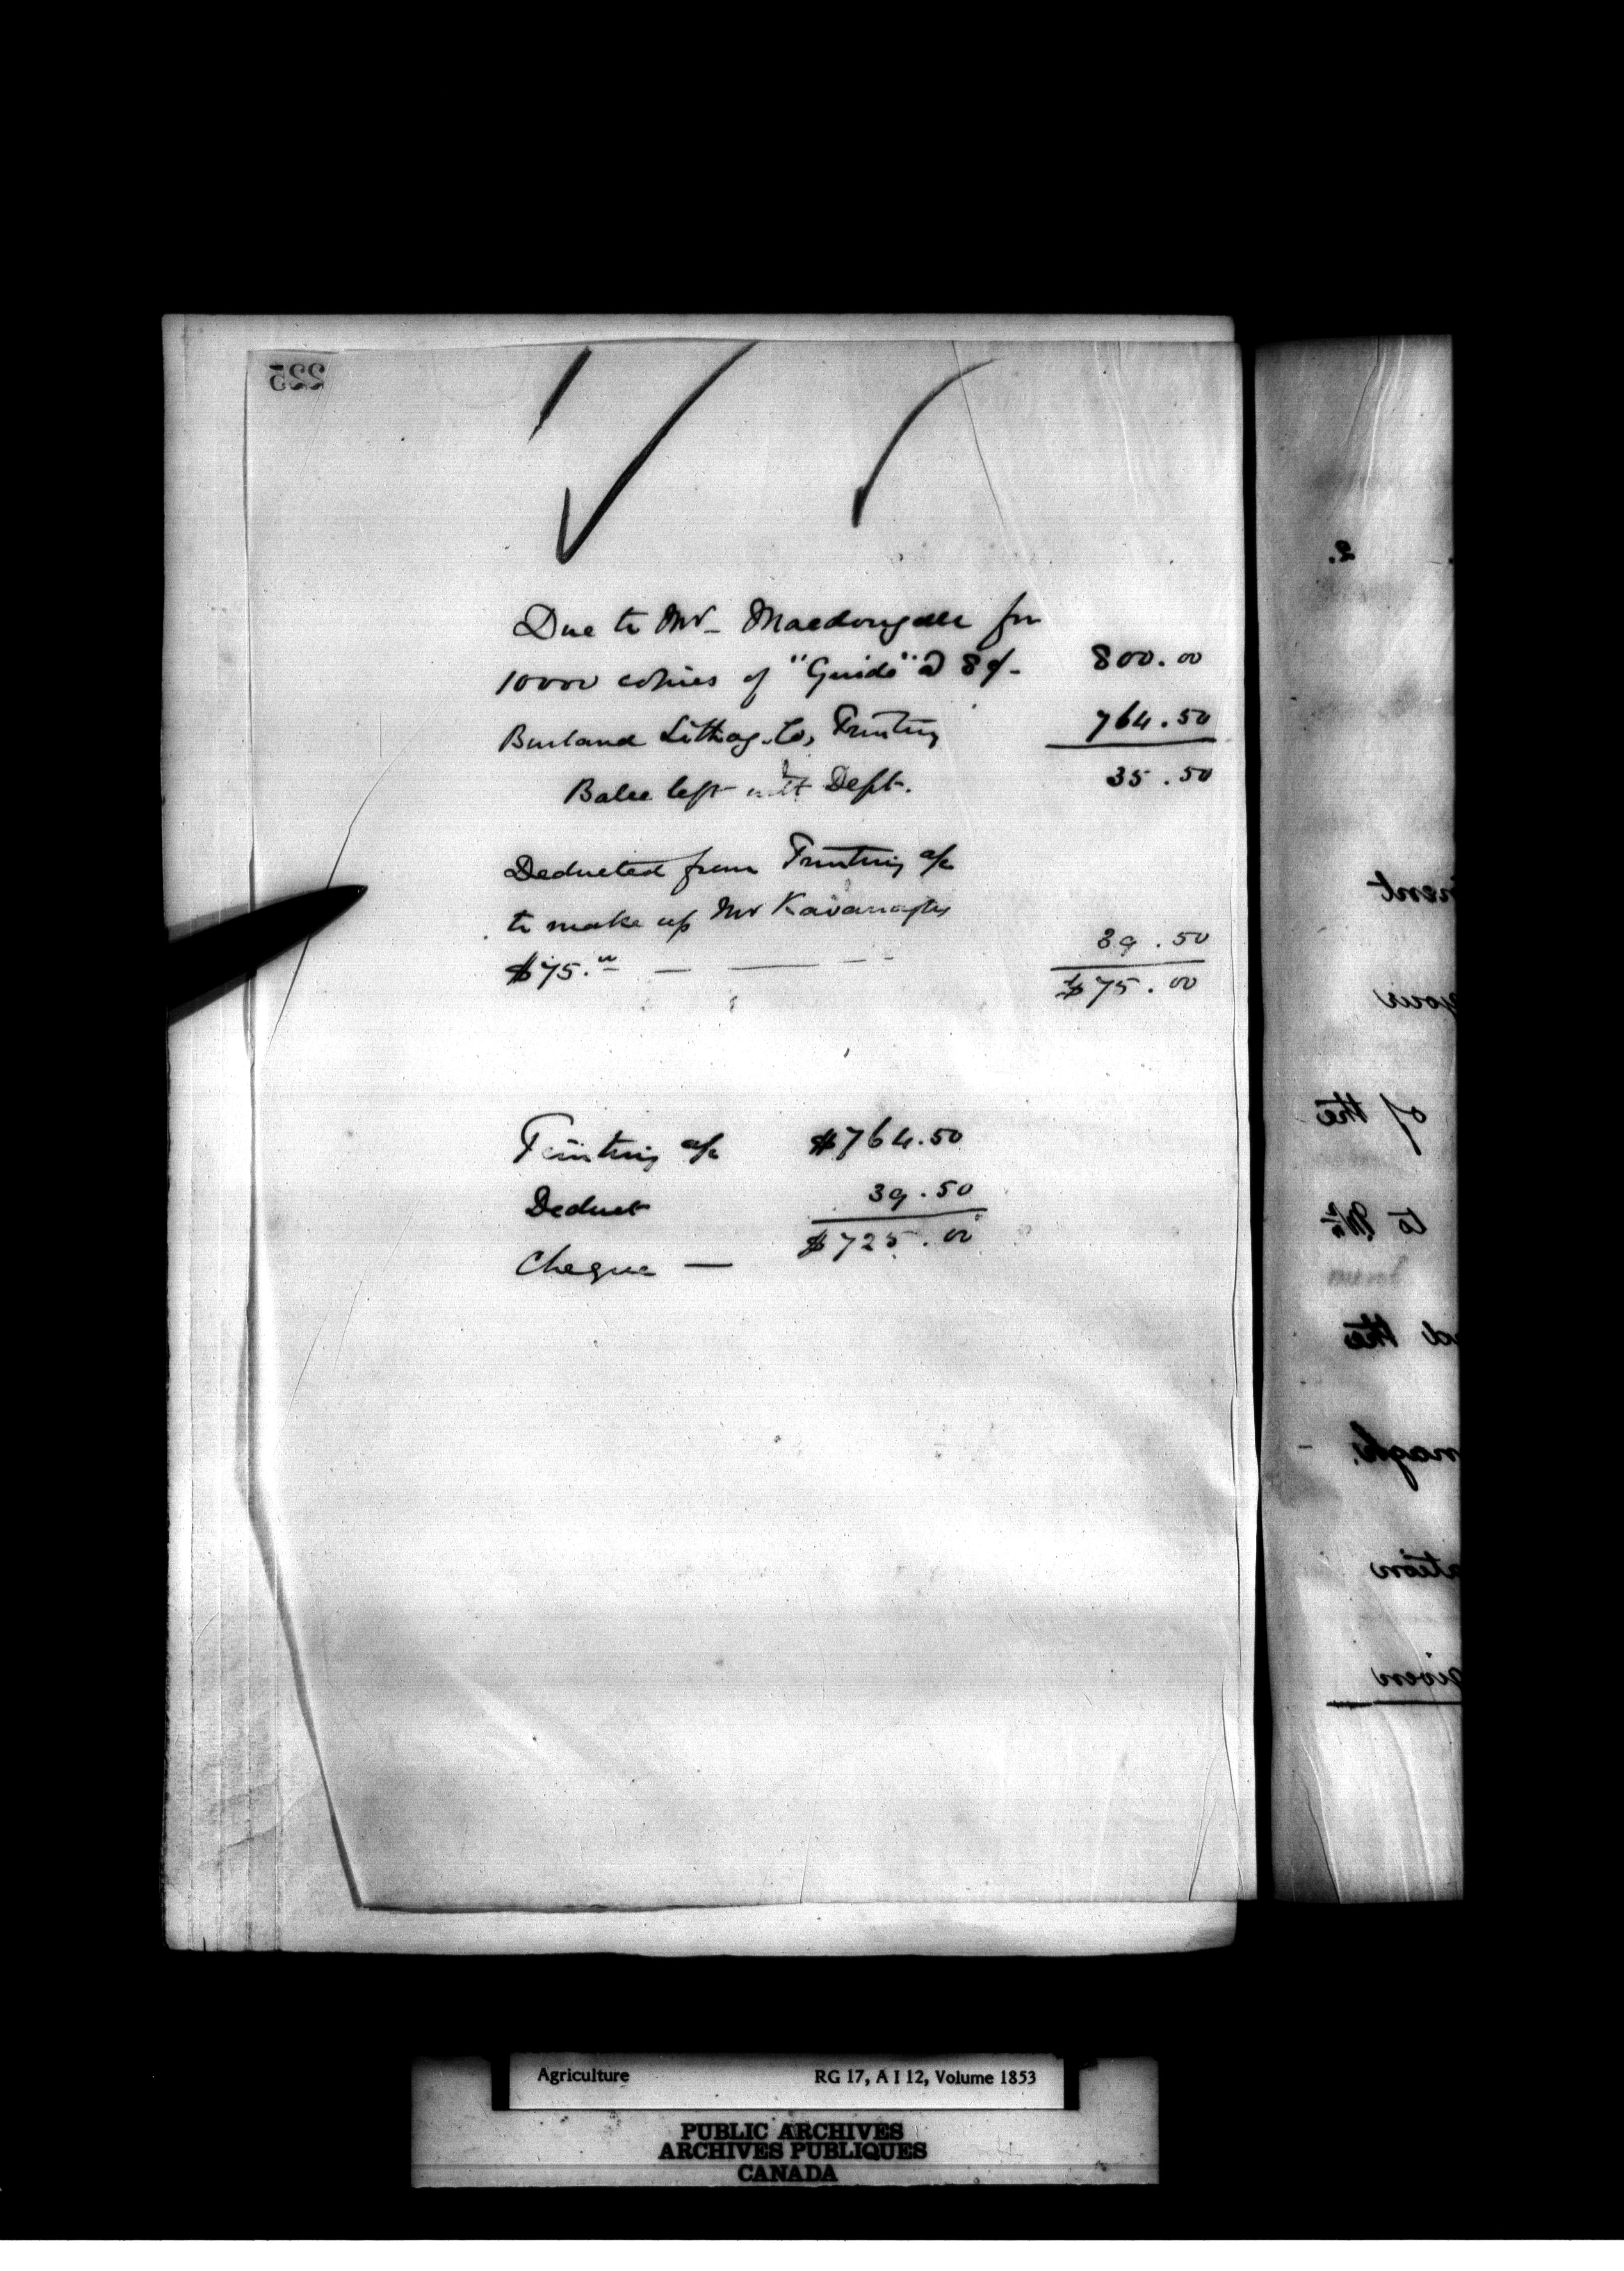 225
Due to Mr - Macdougall for
10000 copies of "Guide" @ 8¢ - 800.00
Burland Lithog. Co, Printing 764.50
Balce left with Dept. 35.50
Deducted from Printing a/c
to make up Mr Kavanaghs
$75.00 — — - - 39.50
$75.00
Printing a/c $764.50
Deduct 39.50
Cheque — $725.00
2.
of the
to Mr
the
Agriculture RG 17, A I 12, Volume 1853
PUBLIC ARCHIVES
ARCHIVES PUBLIQUES
CANADA